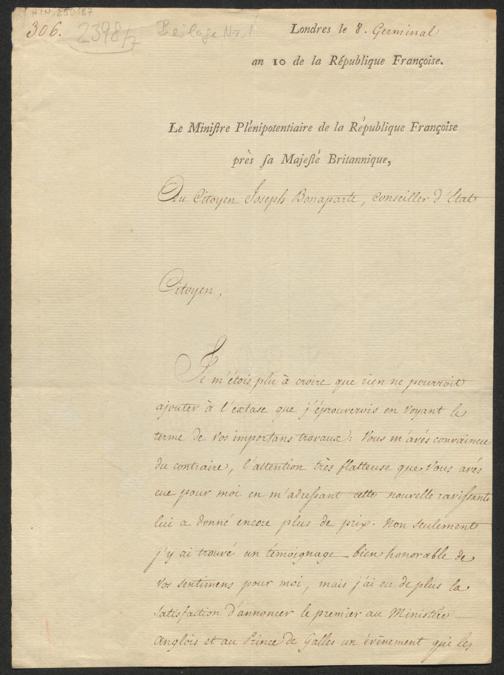 HIN-250187
306. 2398/2 Beilage Nr. 1
Londres le 8. Germinal
an 10 de la République Françoise.
Le Ministre Plénipotentiaire de la République Françoise
près sa Majesté Britannique,
Au Citoyen Joseph Bonaparte, Conseiller d'Etat
Citoyen,
Je m'étois plu à croire que rien ne pourroit
ajouter à l'extase que j'éprouverois en voyant le
terme de vos importans travaux: Vous m'avés convaincu
du contraire, l'attention très flatteuse que Vous avés
eue pour moi en m'adressant cette nouvelle ravissante
lui a donné encore plus de prix. Non seulement
j'y ai trouvé un témoignage bien honorable de
vos sentimens pour moi, mais j'ai eu de plus la
satisfaction d'annoncer le premier au Ministère
Anglois et au Prince de Galles un évènement qui les